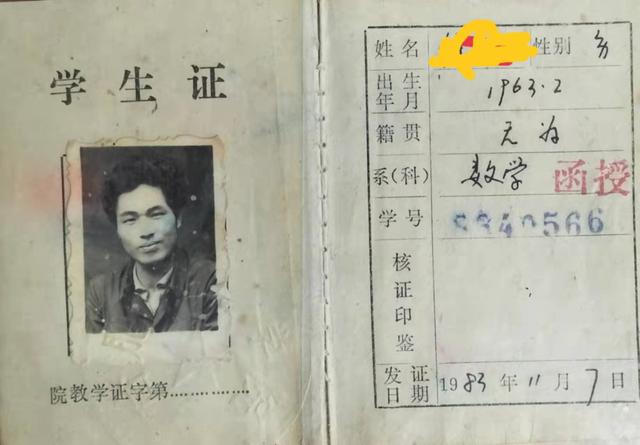 学生证
院教学证字第
姓名 性别 男
出生年月 1963·2
籍贯 无为
系(科) 数学 函授
学号 8340566
核证印鉴
发证日期 1983年11月7日